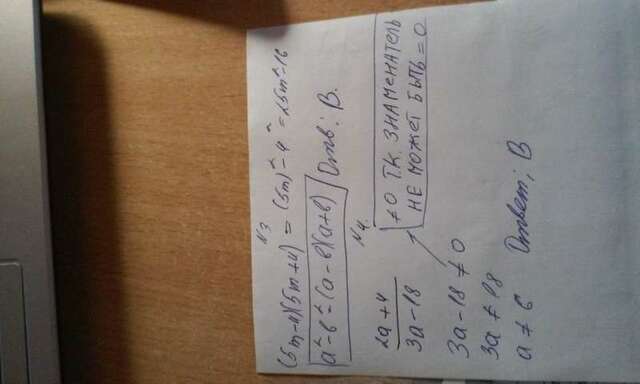 N3
(5m-4)(5m+4) = (5m)² - 4² = 25m² - 16
a² - b² = (a - b)(a + b) Отв: В.
N4
2a + 4
3a - 18
≠ 0 Т.К. ЗНАМЕНАТЕЛЬ
НЕ МОЖЕТ БЫТЬ = 0
3a - 18 ≠ 0
3a ≠ 18
a ≠ 6 Ответ: В